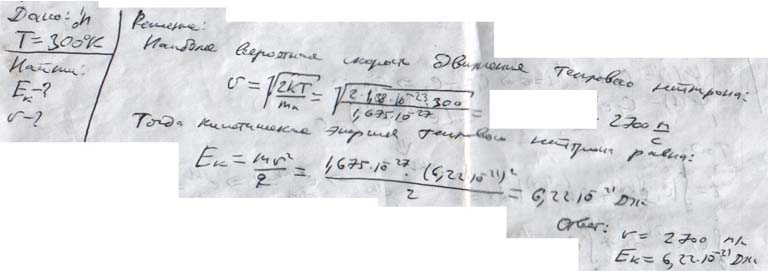 Дано: ¹₀n
T = 300°K
Найти:
Eк - ?
v - ?
Решение:
Наиболее вероятная скорость движения теплового нейтрона:
v = √(2kT/mₙ) = √(2·1,38·10⁻²³·300/1,675·10⁻²⁷) = 2700 м/с
Тогда кинетическая энергия теплового нейтрона равна:
Eк = mv²/2 = 1,675·10⁻²⁷·(6,22·10⁻²¹)²/2 = 6,22·10⁻²¹ Дж
Ответ: v = 2700 м/с
Eк = 6,22·10⁻²¹ Дж